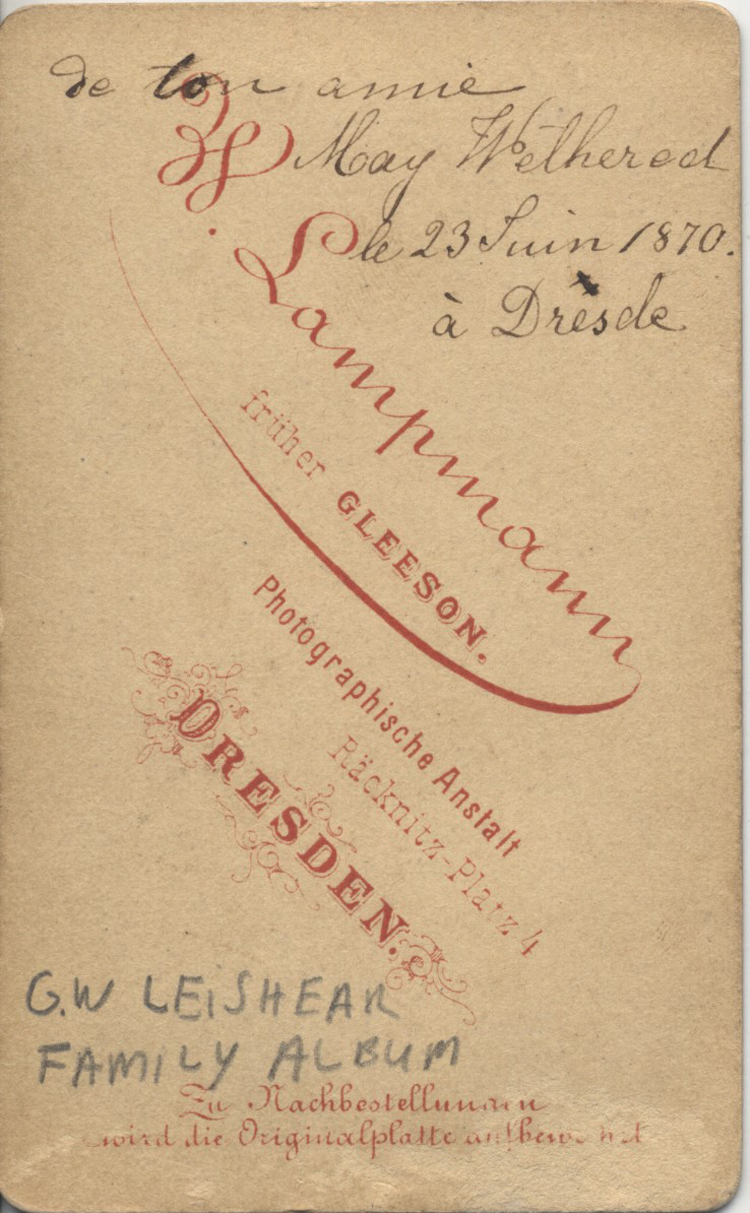 de ton amie
May Wethered
le 23 Juin 1870.
à Dresde
W. Lampmann
früher GLEESON.
Photographische Anstalt
Räcknitz-Platz 4
DRESDEN.
G.W LEiSHEAR
FAMILY ALBUM
Zu Nachbestellungen
wird die Originalplatte aufbewahrt